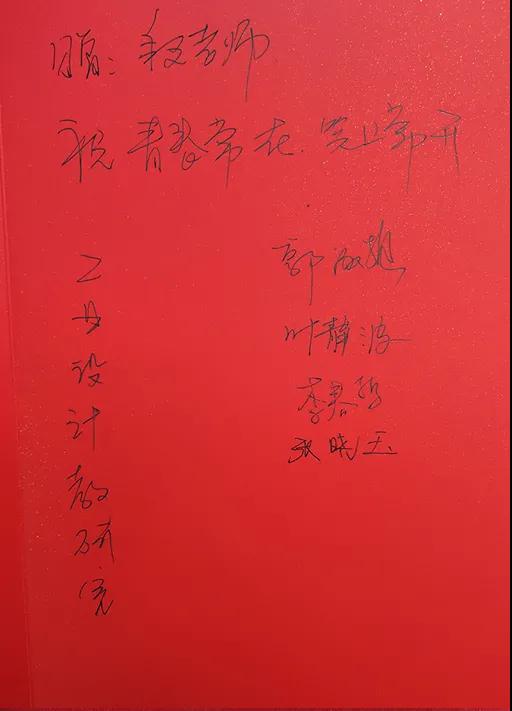 赠：段老师
祝青春常在.笑口常开
工业设计教研室
郭
叶静波
李君
张晓玉